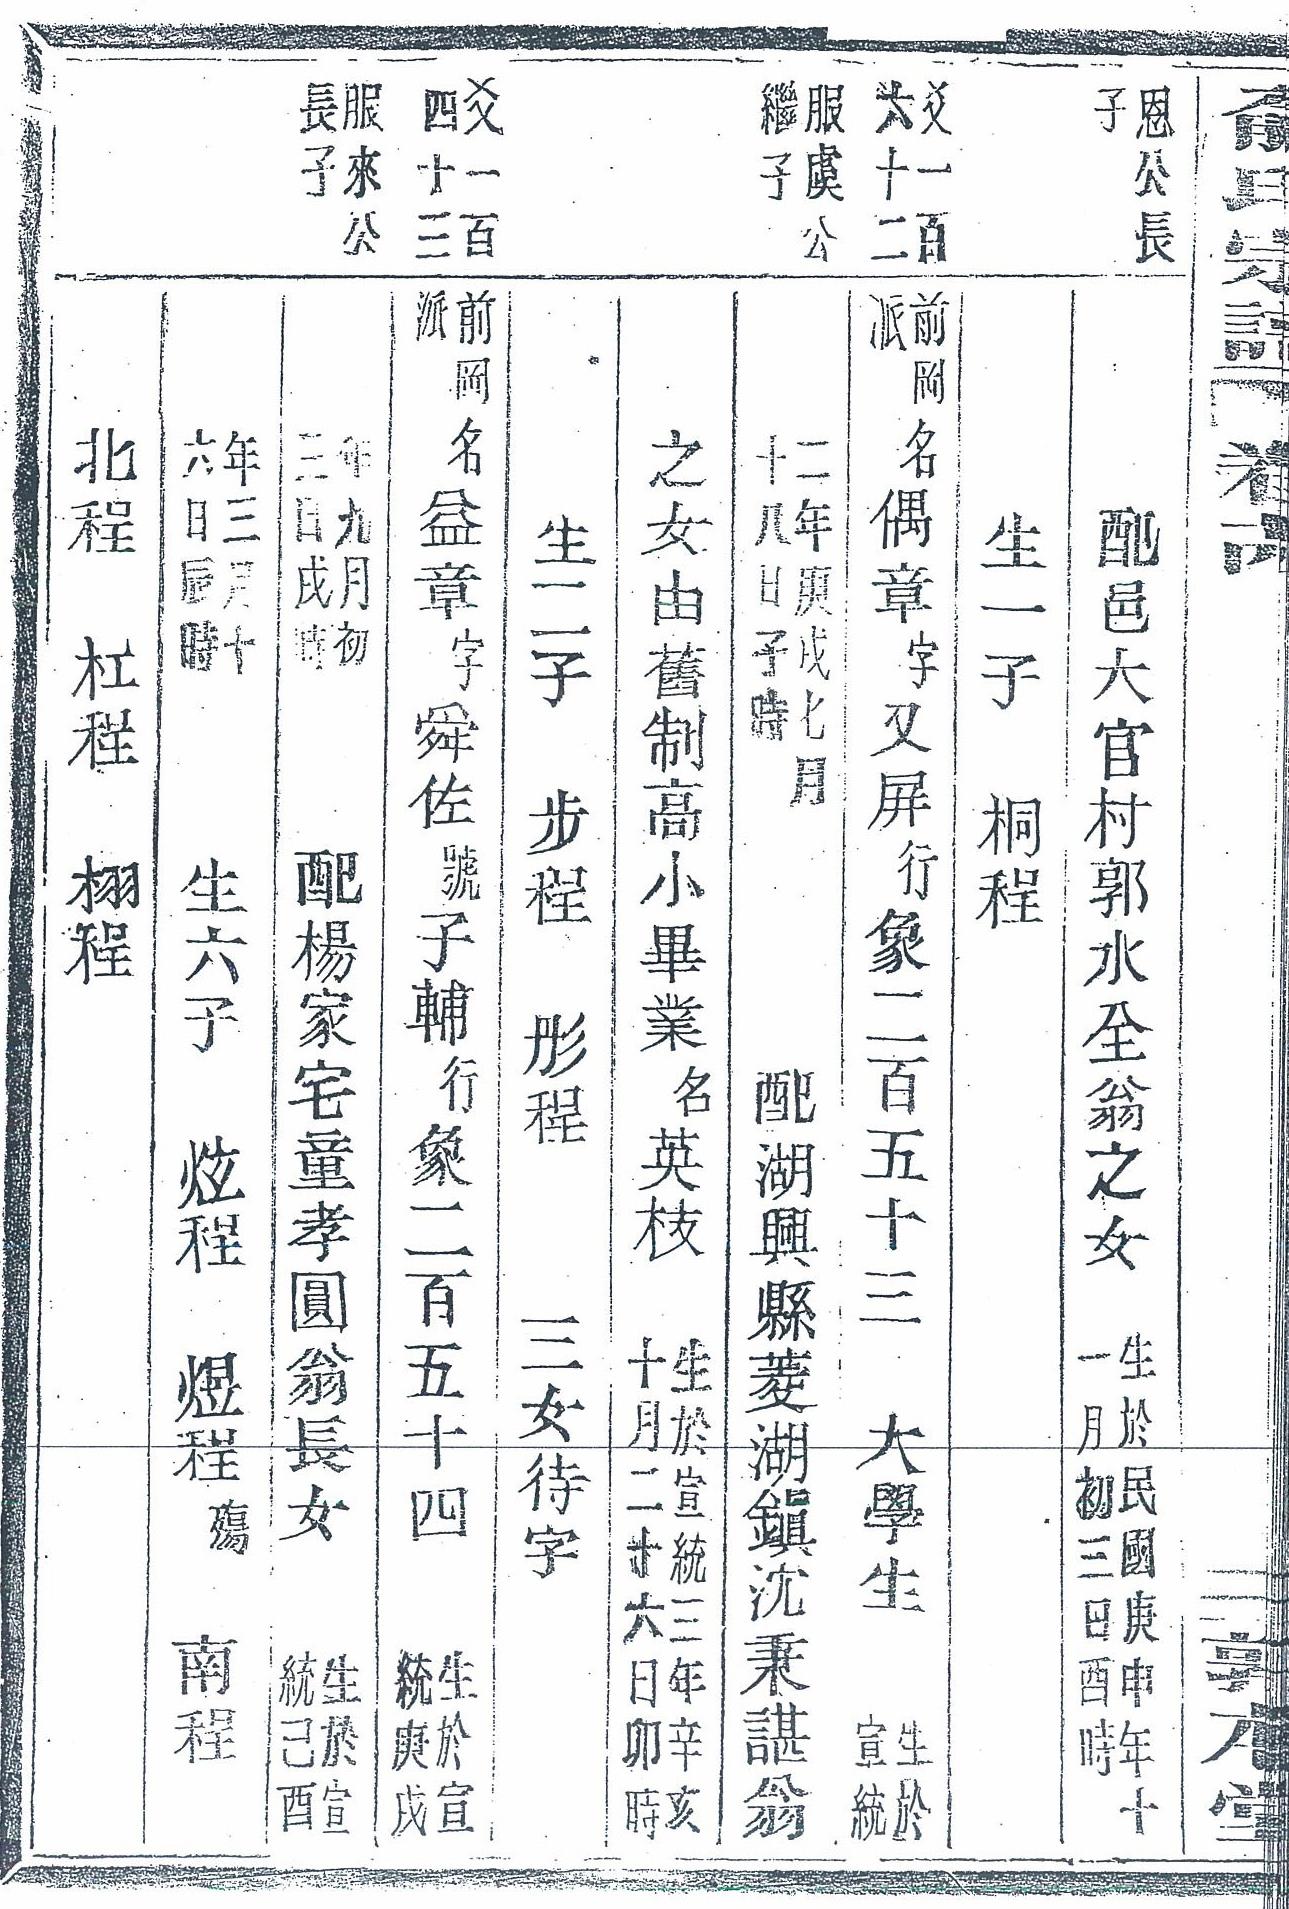 俞氏宗譜 卷六
恩公長
子
配邑大官村郭水全翁之女 生於民國庚申年十
一月初三日酉時
生一子 桐程
爻一百
六十二
前岡
派
名偶章字又屏行象二百五十三 大學生 生於
宣統
服虞公
繼子
二年庚戌七月
十八日子時
配湖興縣菱湖鎮沈秉諶翁
之女由舊制高小畢業名英枝 生於宣統三年辛亥
十月二十六日卯時
生二子 步程 彤程 三女待字
爻一百
四十三
前岡
派
名益章字舜佐號子輔行象二百五十四 生於宣
統庚戌
服來公
長子
年九月初
三日戌時
配楊家宅童孝圓翁長女 生於宣
統己酉
年三月十
六日辰時
生六子 炫程 煜程殤 南程
北程 杠程 栩程